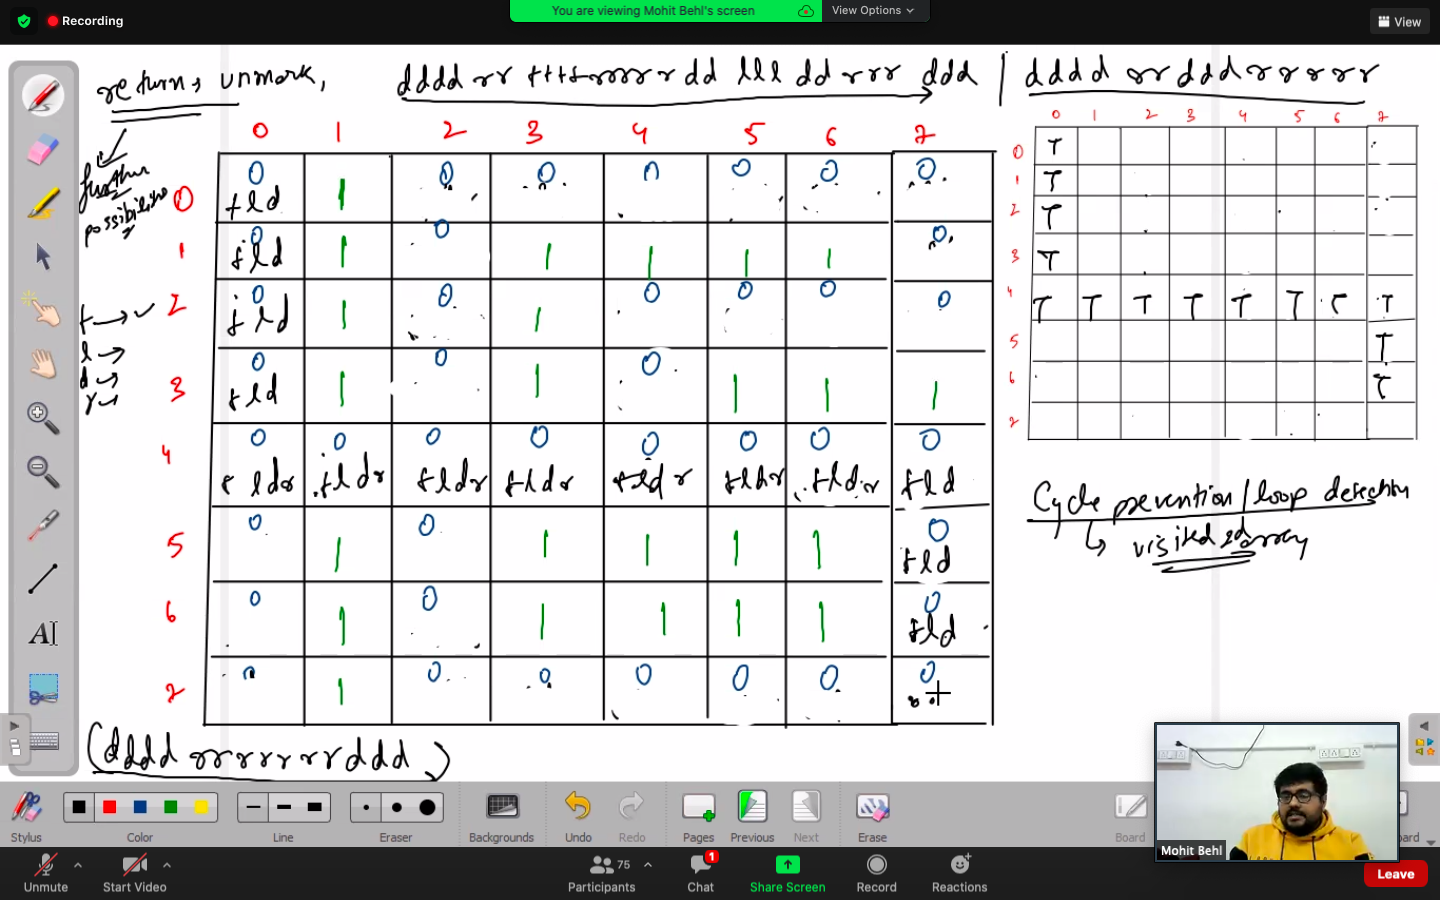 Recording
You are viewing Mohit Behl's screen
View Options
View
return, unmark, dddd rr tttt rrrrr dd lll dd rrr ddd | dddd rr ddd rrrrrr
further
possibilities
t → ✓
l →
d →
r →
0 1 2 3 4 5 6 7
0 0 1 0 0 0 0 0 0
tld
1 0 1 0 1 1 1 1 0
tld
2 0 1 0 1 0 0 0 0
tld
3 0 1 0 1 0 1 1 1
tld
4 0 0 0 0 0 0 0 0
tldr tldr tldr tldr tldr tldr tldr tld
5 0 1 0 1 1 1 1 0
tld
6 0 1 0 1 1 1 1 0
tld
7 0 1 0 0 0 0 0 0
(dddd rrrrrrr ddd)
0 1 2 3 4 5 6 7
0 T
1 T
2 T
3 T
4 T T T T T T T T
5 T
6 T
7
Cycle prevention/loop detection
visited array
A
Stylus
Color
Line
Eraser
Backgrounds
Undo
Redo
Pages
Previous
Next
Erase
Board
Mohit Behl
Unmute
Start Video
75
Participants
1
Chat
Share Screen
Record
Reactions
Leave